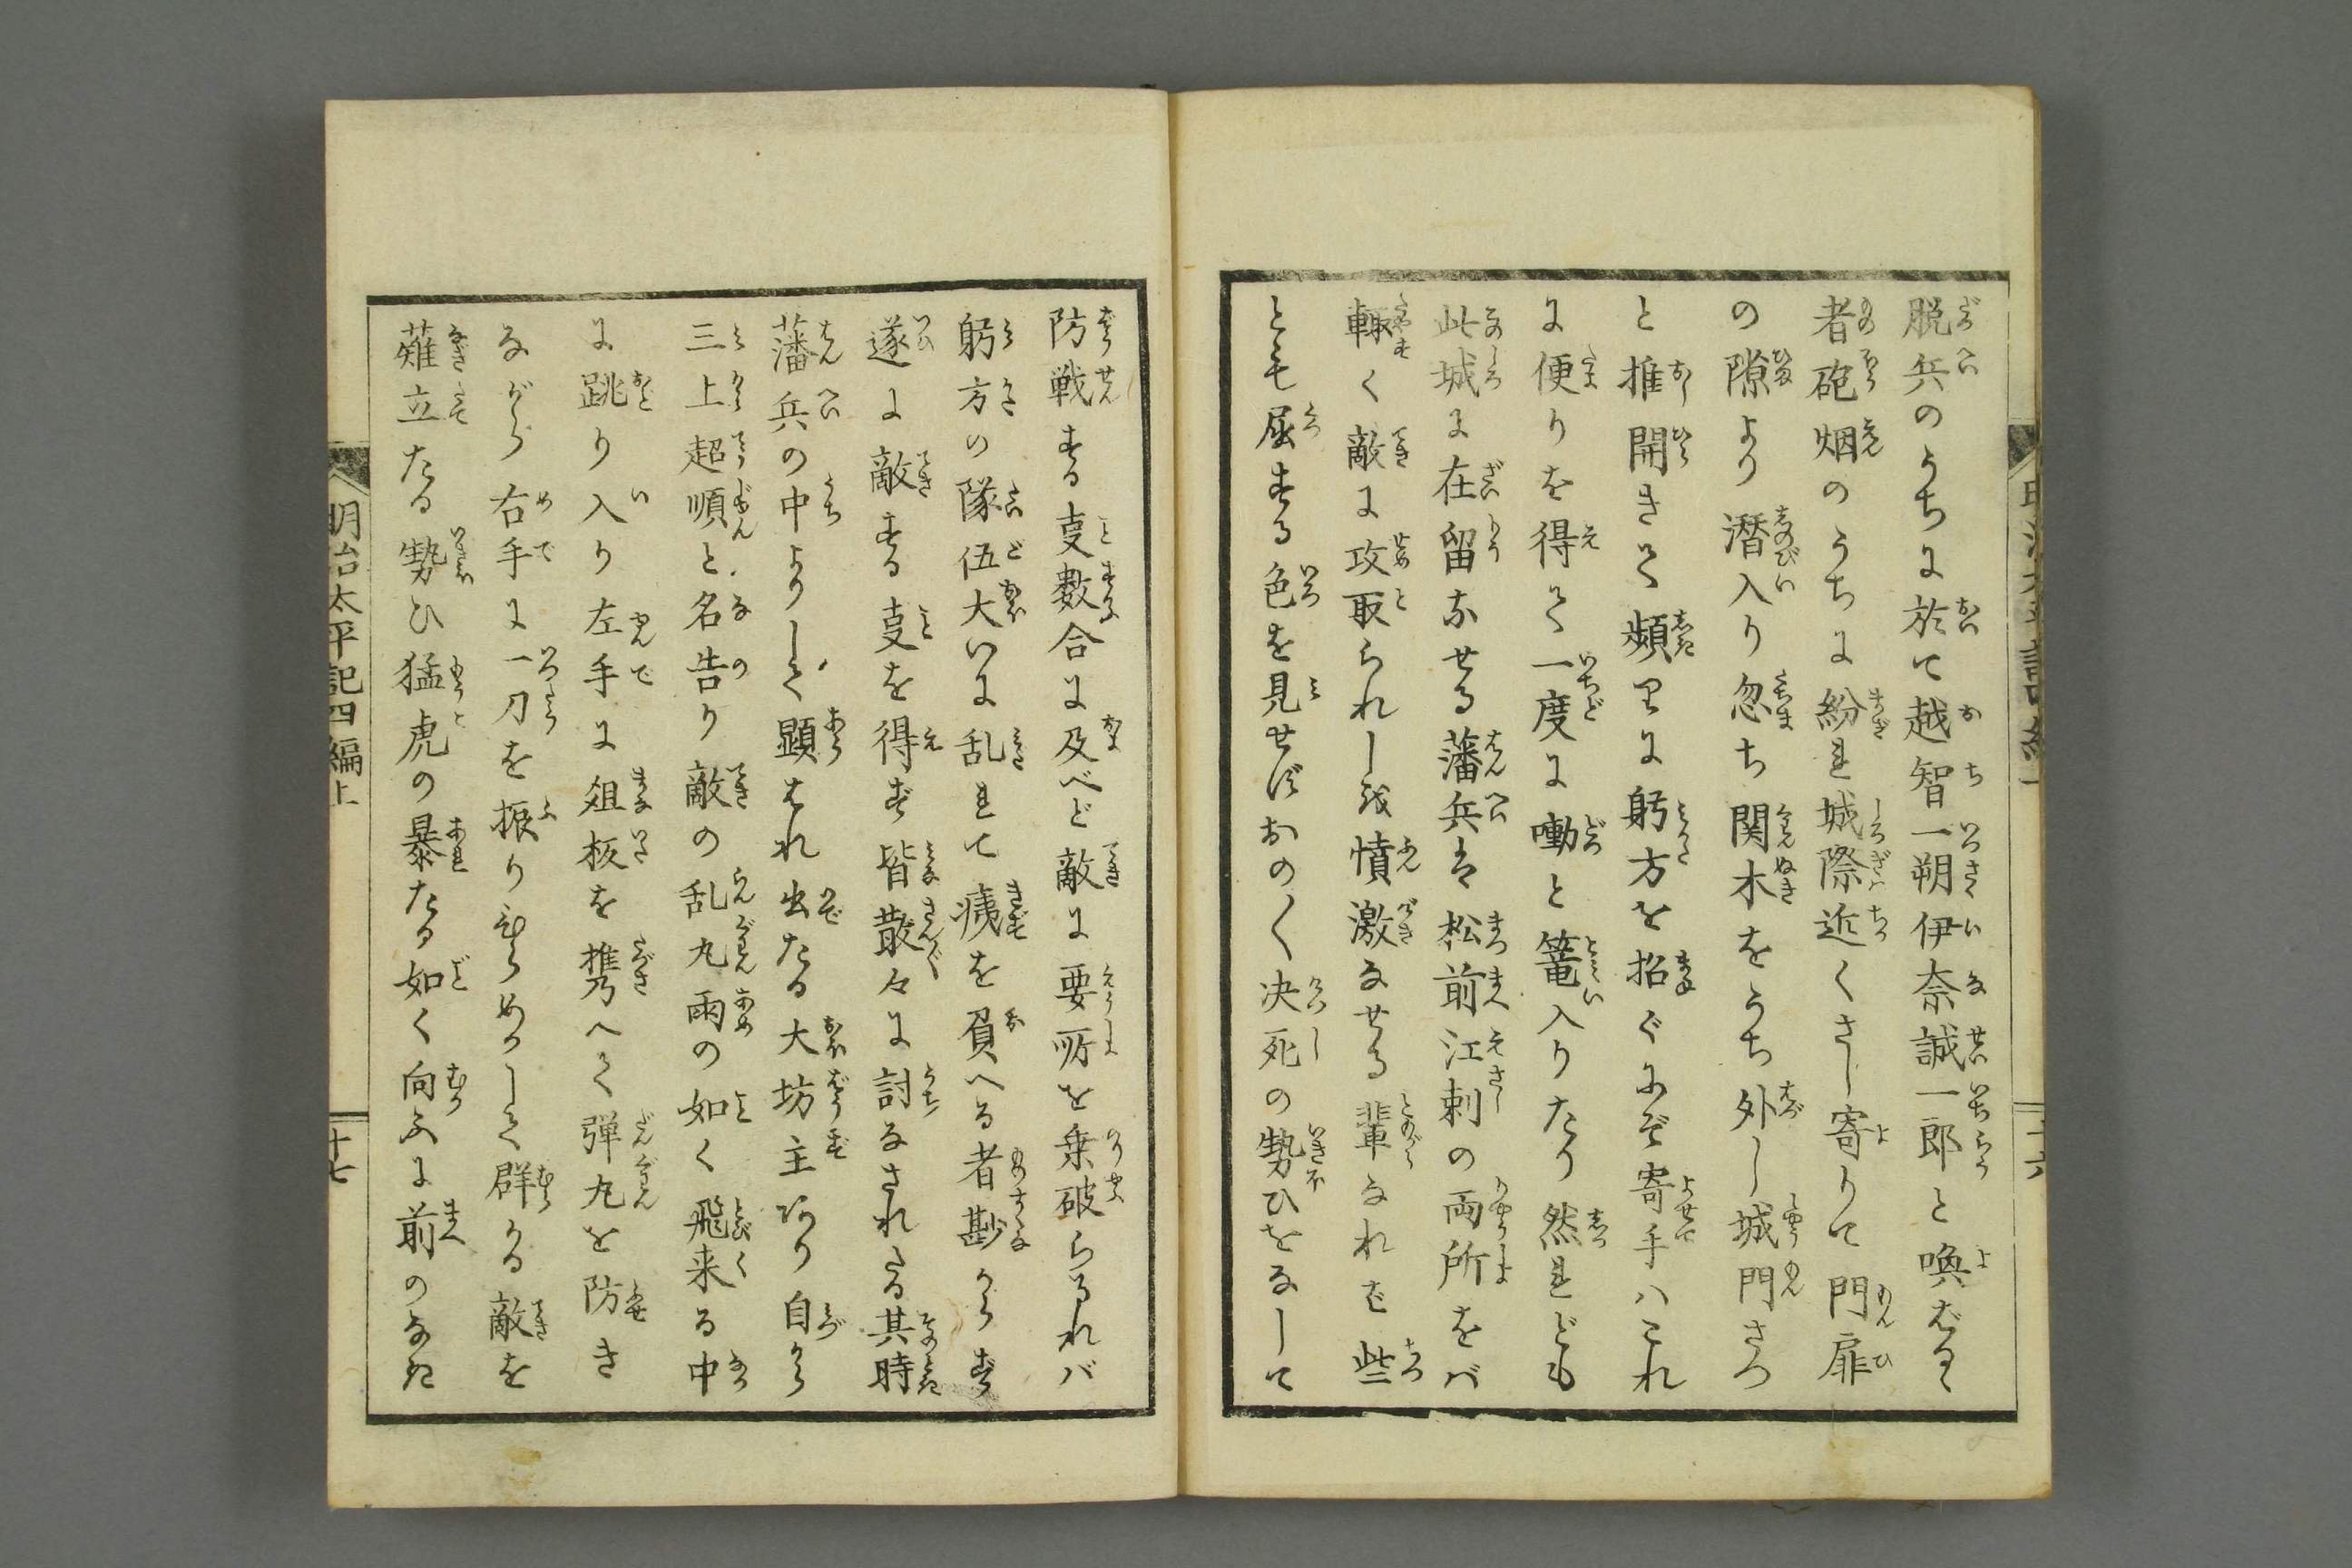 脱兵のうちに於て越智一朔伊奈誠一郎と喚ばるゝ
者砲烟のうちに紛れ城際近くさし寄りて門扉
の隙より潜入り忽ち関木をうち外し城門さつ
と推開きて頻りに躬方を招ぐにぞ寄手ハこれ
に便りを得て一度に嘞と篭入りたり然れども
此城に在留なせる藩兵は松前江刺の両所をバ
輙く敵に攻取られし故憤激なせる輩なれば些
とも屈する色を見せずおの〳〵决死の勢ひをなして
防戦する叓数合に及べど敵に要所を乗破らるれバ
躬方の隊伍大いに乱れて痍を負へる者尠からず
遂に敵する叓を得ず皆散々に討なされたる其時
藩兵の中よりして顕はれ出たる大坊主あり自から
三上超順と名告り敵の乱丸雨の如く飛来る中
に跳り入り左手に爼板を携へて弾丸を防き
ながら右手に一刀を振りひらめかして群がる敵を
薙立たる勢ひ猛虎の暴たる如く向ふに前のなれ
明治太平記四編上
十七